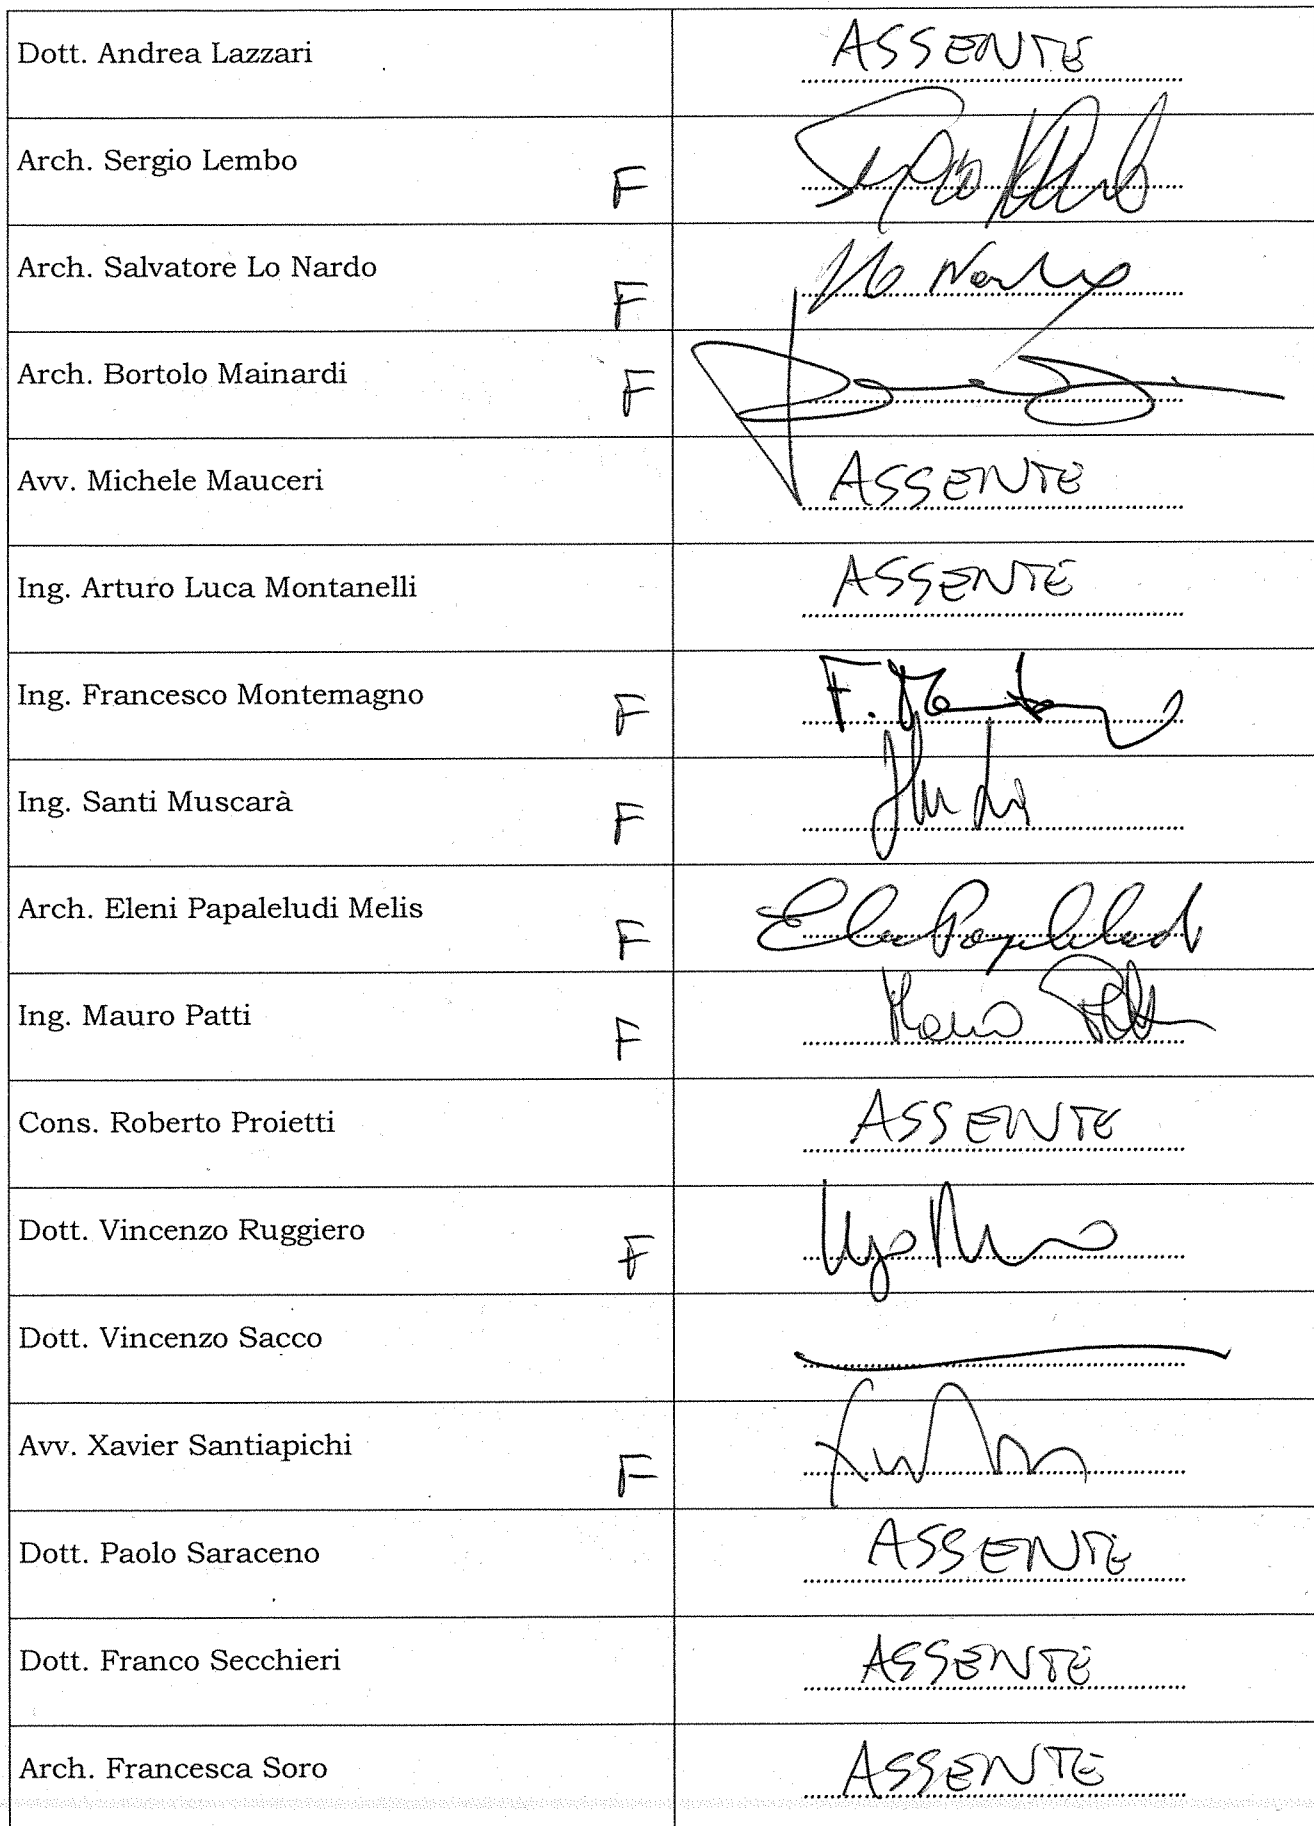 Dott. Andrea Lazzari ASSENTE
Arch. Sergio Lembo F
Arch. Salvatore Lo Nardo F Lo Nardo
Arch. Bortolo Mainardi F
Avv. Michele Mauceri ASSENTE
Ing. Arturo Luca Montanelli ASSENTE
Ing. Francesco Montemagno F
Ing. Santi Muscarà F
Arch. Eleni Papaleludi Melis F
Ing. Mauro Patti F
Cons. Roberto Proietti ASSENTE
Dott. Vincenzo Ruggiero F
Dott. Vincenzo Sacco
Avv. Xavier Santiapichi F
Dott. Paolo Saraceno ASSENTE
Dott. Franco Secchieri ASSENTE
Arch. Francesca Soro ASSENTE